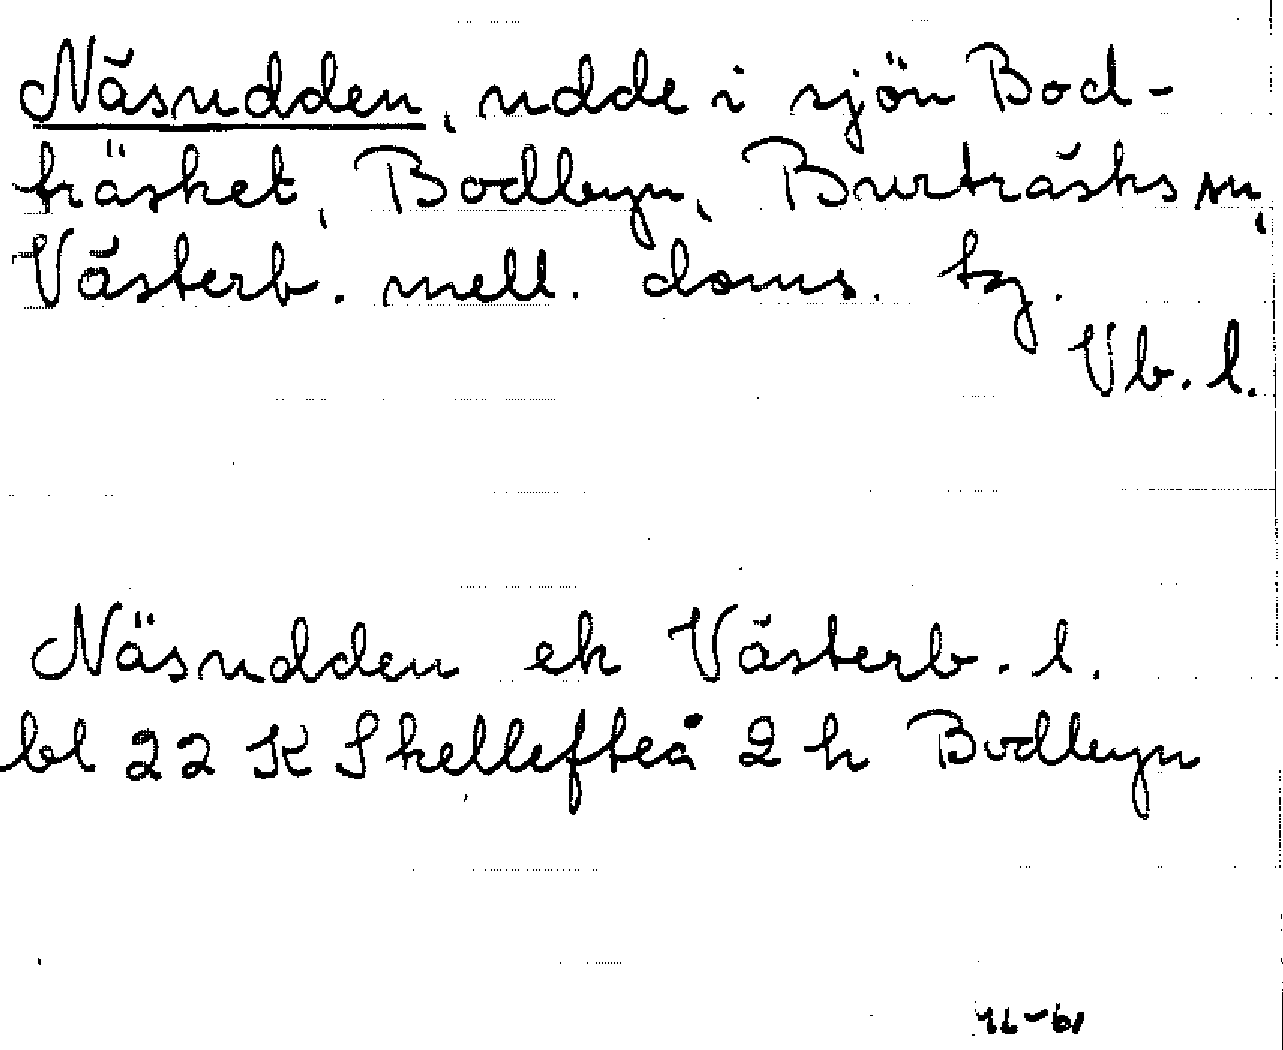 Näsudden, udde i sjön Bod-
träsket, Bodbyn, Burträsks sn,
Västerb. mell. doms. tg.
Vb. l.
Näsudden ek Västerb. l.
bl 22 K Skellefteå 2 h Bodbyn